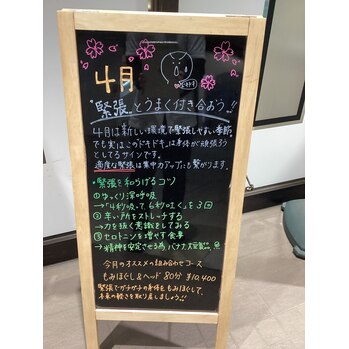 4月
ドキドキ
"緊張"とうまく付き合おう!!
4月は新しい環境で緊張しやすい季節。
でも実はこのドキドキは身体が頑張ろう
としてるサインです。
適度な緊張は集中力アップにも繋がります。
・緊張を和らげるコツ
①ゆっくり深呼吸
→「4秒吸って6秒吐く」を3回
②辛い所をストレッチする
→力を抜く意識をしてみる
③セロトニンを増やす食事
→精神を安定させる為 バナナ、大豆製品、魚
今月のオススメの組み合わせコース
もみほぐし&ヘッド 80分 ¥10,400
緊張でガチガチの身体をもみほぐして、
本来の軽さを取り戻しましょう!!